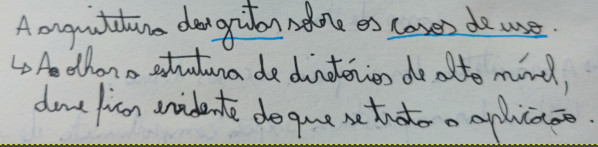 A arquitetura deve gritar sobre os casos de uso.
↳ Ao olhar a estrutura de diretórios de alto nível,
deve ficar evidente do que se trata a aplicação.